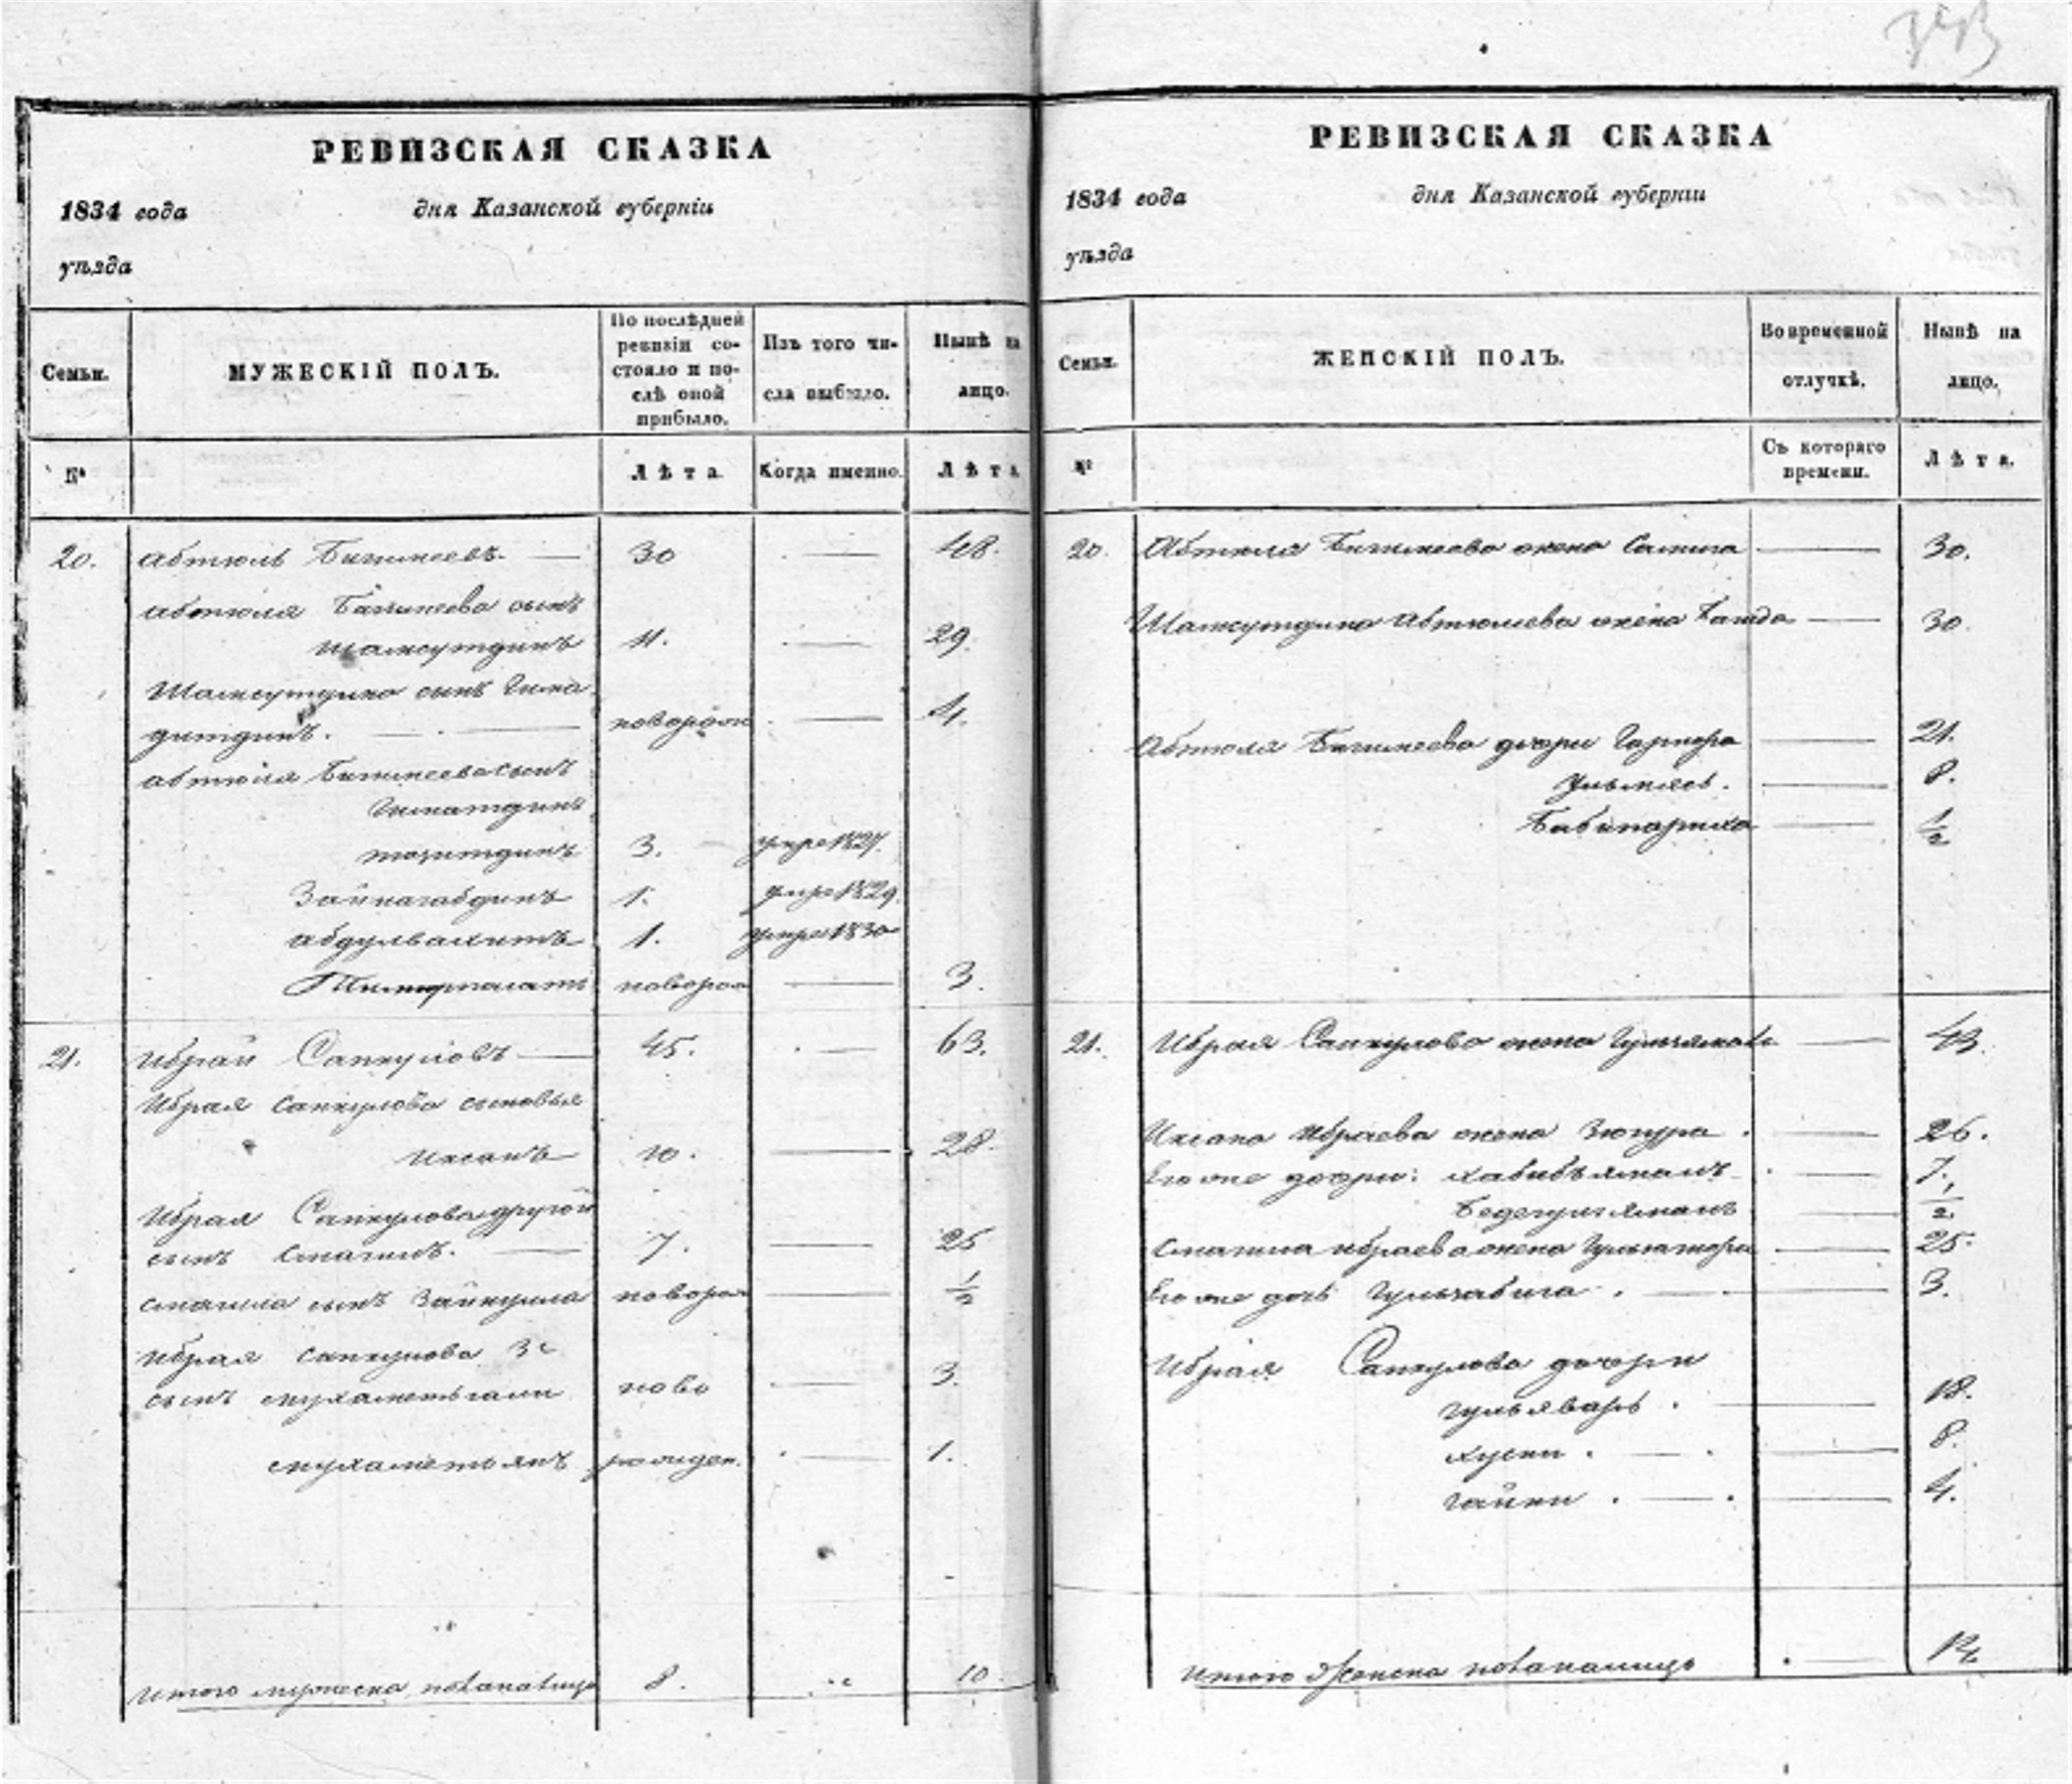 РЕВИЗСКАЯ СКАЗКА
1834 года дня Казанской губерніи
уѣзда
Семьи. МУЖЕСКІЙ ПОЛЪ. По послѣдней ревизіи состояло и послѣ оной прибыло. Изъ того числа выбыло. Нынѣ на лицо.
№ Лѣта. Когда именно. Лѣта
20. Абтюль Бигинеевъ — 30 — 48.
Абтюля Бигинеева сынъ
Шамсутдинъ 11. — 29.
Шамсутдина сынъ Гима
дитдинъ. — новорож — 4.
Абтюля Бигинеева сынъ
Гиматдинъ
3. умре 1827.
Зайнагабдинъ 1. умре 1829.
Абдулвахитъ 1. умре 1830
новорож — 3.
21. Ибрай Сапкуловъ — 45. — 63.
Ибрая Сапкулова сыновья
Ихсанъ 10. — 28.
Ибрая Сапкулова другой
сынъ Смагилъ. — 7. — 25
Смагила сынъ Зайнулла новорож — 1/2
Ибрая Сапкулова 3й
сынъ Мухаметьгали ново — 3.
Мухаметьянъ рожден. — 1.
Итого мужеска пола налицо 8. " 10.
РЕВИЗСКАЯ СКАЗКА
1834 года дня Казанской губерніи
уѣзда
Семьи. ЖЕНСКІЙ ПОЛЪ. Во временной отлучкѣ. Нынѣ на лицо.
№ Съ котораго времени. Лѣта.
20. Абтюля Бигинеева жена Салиха — 30.
Шамсутдина Абтюлева жена — 30.
Абтюля Бигинеева дочери — 21.
— 8.
— 1/2
21. Ибрая Сапкулова жена — 43.
Ихсана Ибраева жена Зюгура — 26.
Его же дочери: Хабибъямалъ — 7.
Бедегульямалъ — 1/2
Смагила Ибраева жена — 25.
Его же дочь Гульхабига — 3.
Ибрая Сапкулова дочери
Гульяваръ — 18.
Хусни — 8.
Гайни — 4.
Итого женска пола налицо — 12